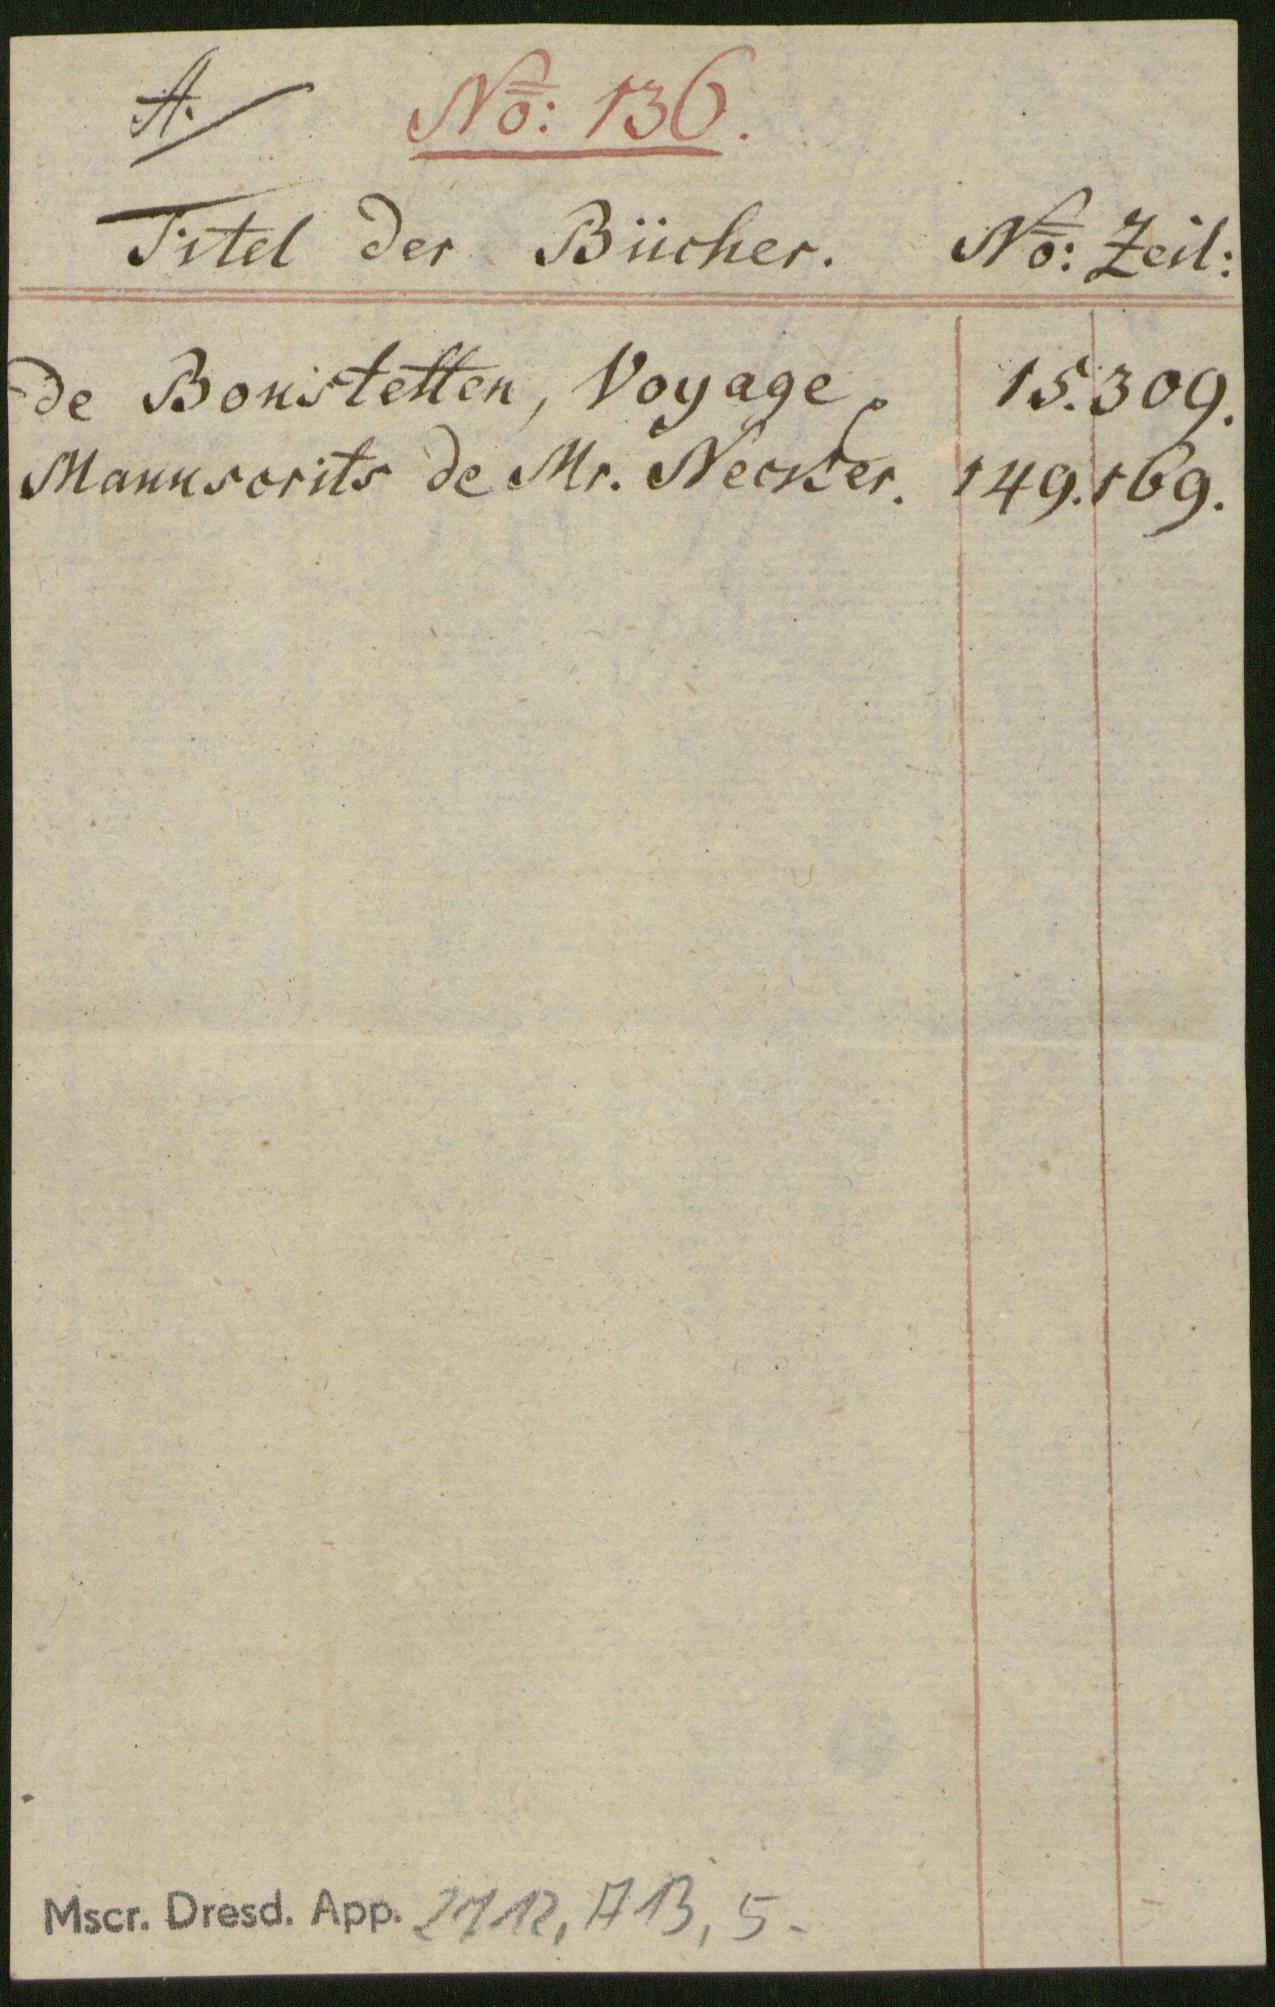 A. No: 136.
Titel der Bücher. No: Zeil:
de Bonstetten, Voyage. 15. 309.
Manuscrits de Mr. Necker. 149. 169.
Mscr. Dresd. App. 2712, A 13, 5.